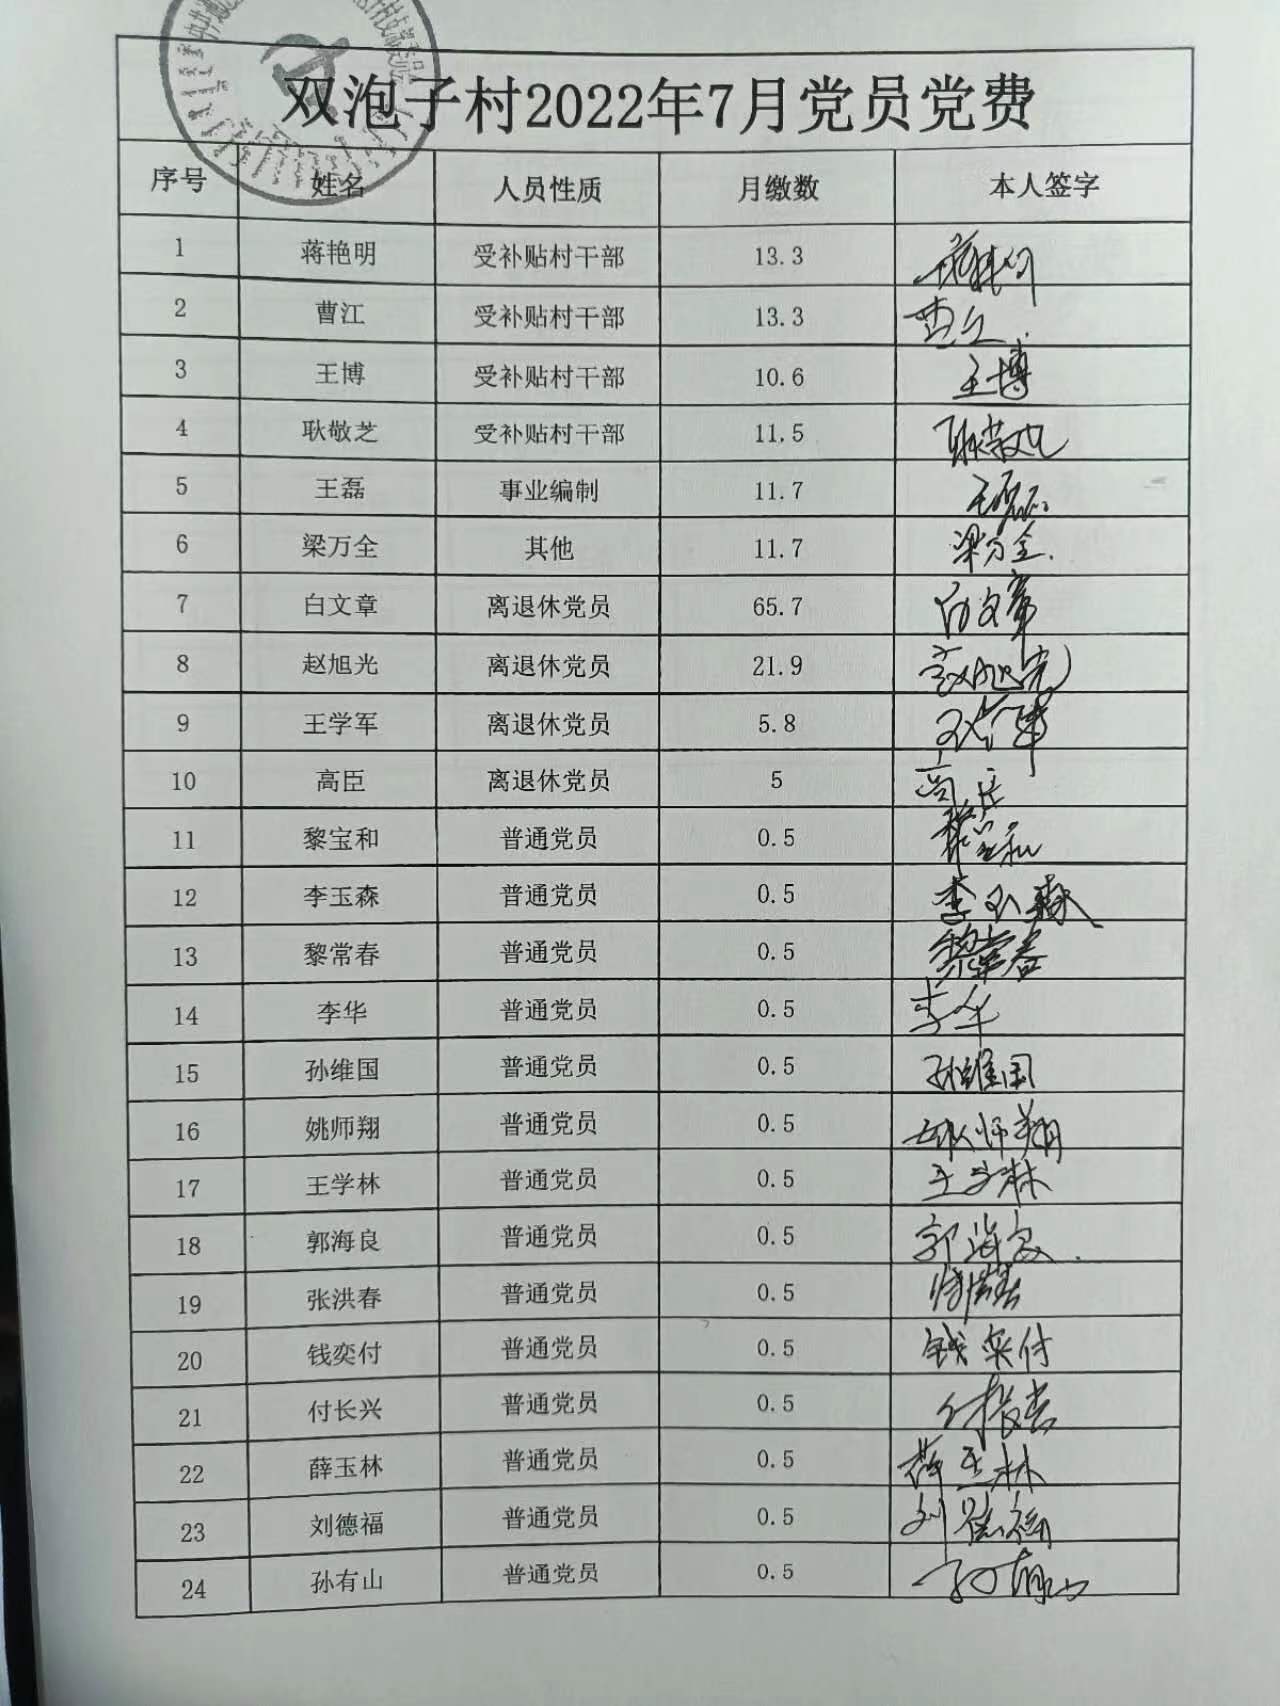 双泡子村2022年7月党员党费
序号 姓名 人员性质 月缴数 本人签字
1 蒋艳明 受补贴村干部 13.3
2 曹江 受补贴村干部 13.3
3 王博 受补贴村干部 10.6 王博
4 耿敬芝 受补贴村干部 11.5
5 王磊 事业编制 11.7 王磊
6 梁万全 其他 11.7 梁万全
7 白文章 离退休党员 65.7 白文章
8 赵旭光 离退休党员 21.9 赵旭光
9 王学军 离退休党员 5.8
10 高臣 离退休党员 5 高臣
11 黎宝和 普通党员 0.5
12 李玉森 普通党员 0.5 李玉森
13 黎常春 普通党员 0.5 黎常春
14 李华 普通党员 0.5 李华
15 孙维国 普通党员 0.5 孙维国
16 姚师翔 普通党员 0.5 姚师翔
17 王学林 普通党员 0.5 王学林
18 郭海良 普通党员 0.5 郭海良
19 张洪春 普通党员 0.5
20 钱奕付 普通党员 0.5 钱奕付
21 付长兴 普通党员 0.5
22 薛玉林 普通党员 0.5 薛玉林
23 刘德福 普通党员 0.5 刘德福
24 孙有山 普通党员 0.5 孙有山